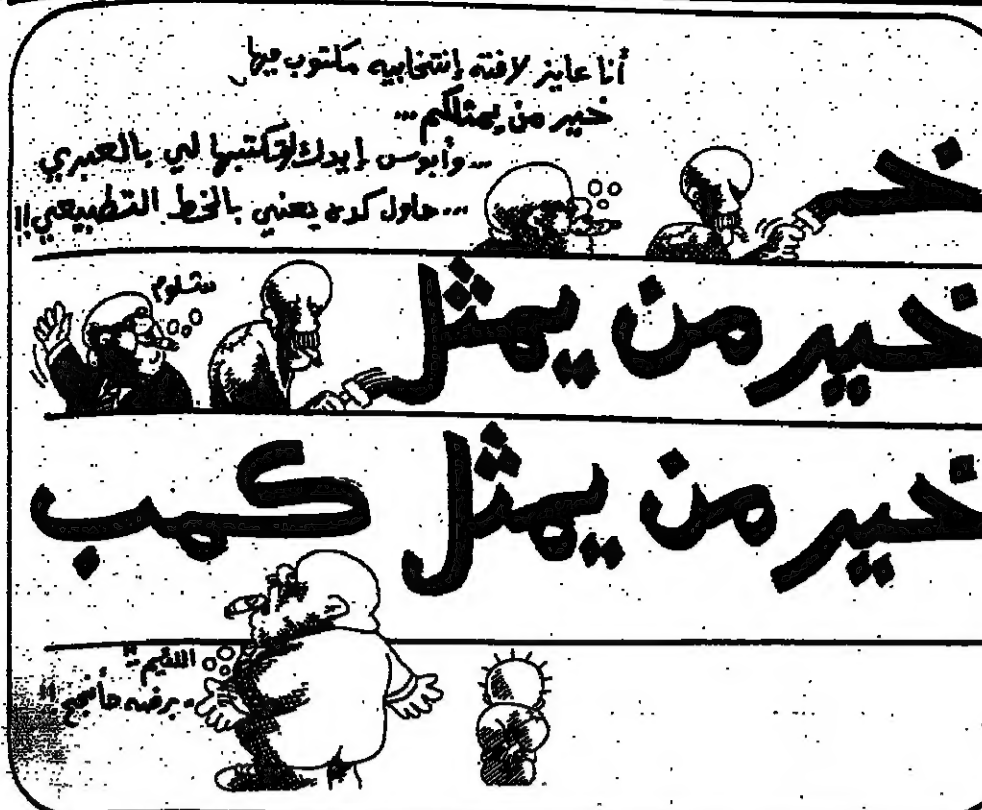 أنا عايز لافته إنتخابيه مكتوب فيها
خير من يمثلكم...
...وأبوس إيدك لتكتبها لي بالعبري
...حاول كده يعني بالخط التطبيعي!!
خـ
شلوم
خير من يمثل
خير من يمثل كمب
برضه حأنجح!!